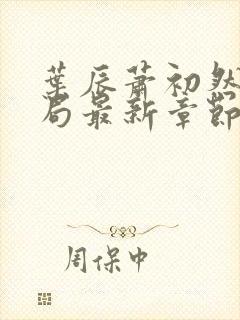 葉辰蕭初然
局最新章節
周保中